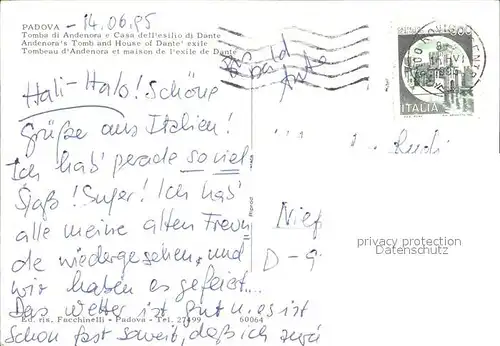 PADOVA - 14.06.85
Tomba di Andenora e Casa dell'esilio di Dante
Andenora's Tomb and House of Dante' exile
Tombeau d'Andenora et maison de l'exile de Dante
Hali-Halo! Schöne
Grüße aus Italien!
Ich hab' gerade so viel
Spaß! Super! Ich hab'
alle meine alten Freun
de wiedergesehen, und
wir haben es gefeiert...
Das Wetter ist gut u. es ist
Schon fast soweit, daß ich
Ed. ris. Facchinelli - Padova - Tel. 27499 60064
Bis
bald
ITALIA
Rudi
D-9
privacy protection
Datenschutz